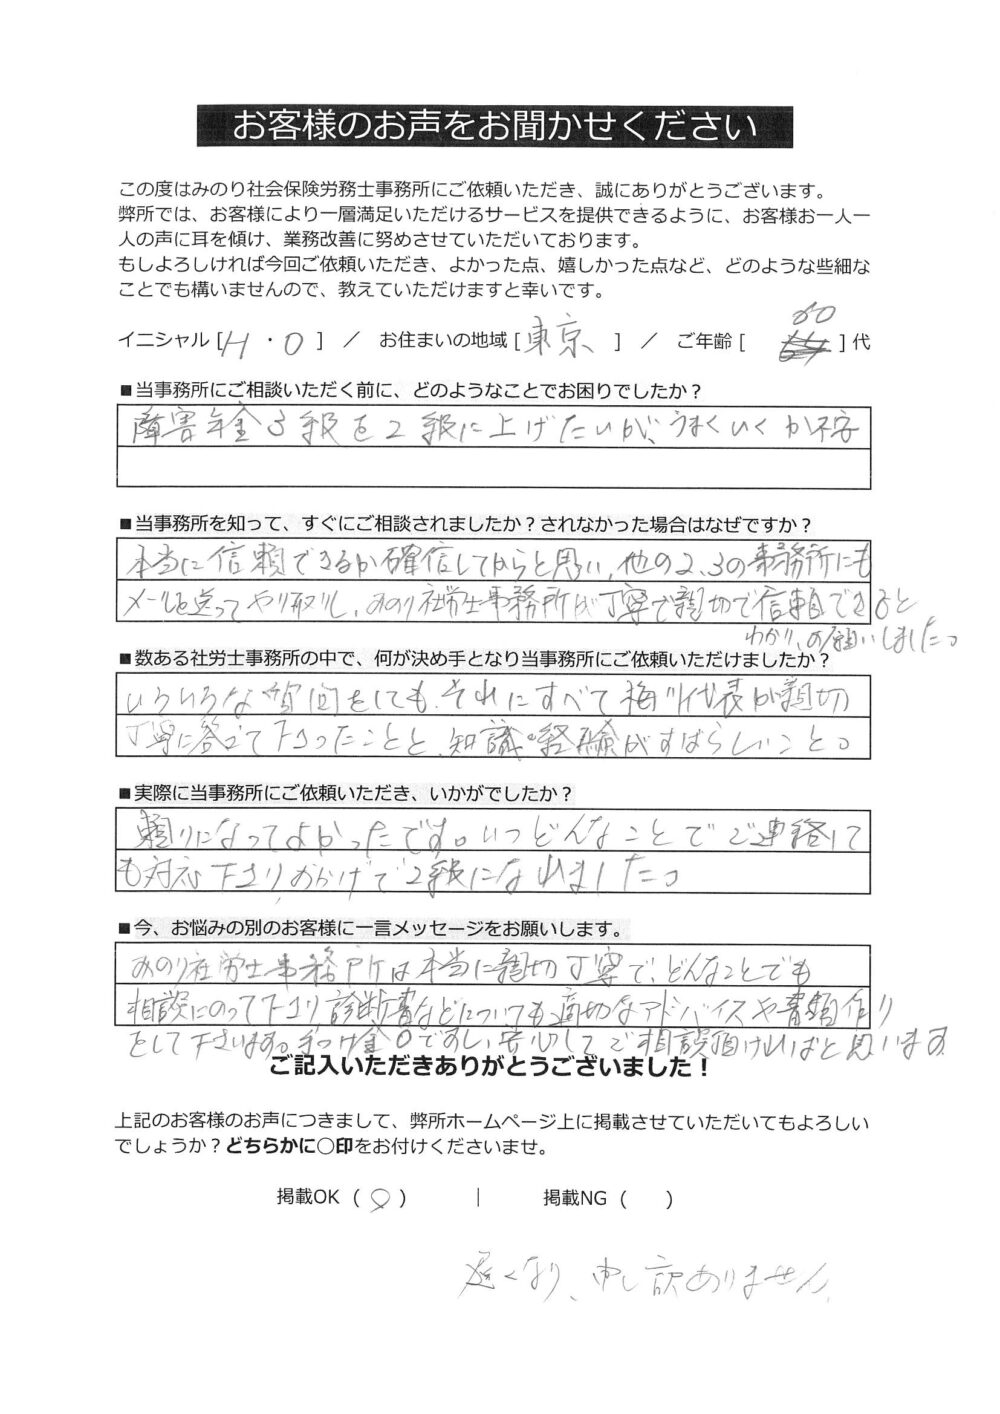 お客様のお声をお聞かせください
この度はみのり社会保険労務士事務所にご依頼いただき、誠にありがとうございます。
弊所では、お客様により一層満足いただけるサービスを提供できるように、お客様お一人一
人の声に耳を傾け、業務改善に努めさせていただいております。
もしよろしければ今回ご依頼いただき、よかった点、嬉しかった点など、どのような些細な
ことでも構いませんので、教えていただけますと幸いです。
60
イニシャル [H・O] ／ お住まいの地域 [東京 ] ／ ご年齢 [ ] 代
■当事務所にご相談いただく前に、どのようなことでお困りでしたか？
障害年金3級を2級に上げたいが、うまくいくか不安
■当事務所を知って、すぐにご相談されましたか？されなかった場合はなぜですか？
本当に信頼できるか確信してからと思い、他の2、3の事務所にも
メールを送ってやり取りし、みのり社労士事務所が丁寧で親切で信頼できると
わかり、お願いしました。
■数ある社労士事務所の中で、何が決め手となり当事務所にご依頼いただけましたか？
いろいろな質問をしても、それにすべて梅川代表が親切
丁寧に答えて下さったことと、知識・経験がすばらしいこと。
■実際に当事務所にご依頼いただき、いかがでしたか？
頼りになってよかったです。いつどんなことでご連絡して
も対応下さり、おかげで2級になれました。
■今、お悩みの別のお客様に一言メッセージをお願いします。
みのり社労士事務所は本当に親切丁寧で、どんなことでも
相談にのって下さり、診断書などについても適切なアドバイスや書類作り
をして下さいます。手つけ金0ですし、安心してご相談頂ければと思います
ご記入いただきありがとうございました！
上記のお客様のお声につきまして、弊所ホームページ上に掲載させていただいてもよろしい
でしょうか？どちらかに○印をお付けくださいませ。
掲載OK （○） ｜ 掲載NG （ ）
遅くなり、申し訳ありません。